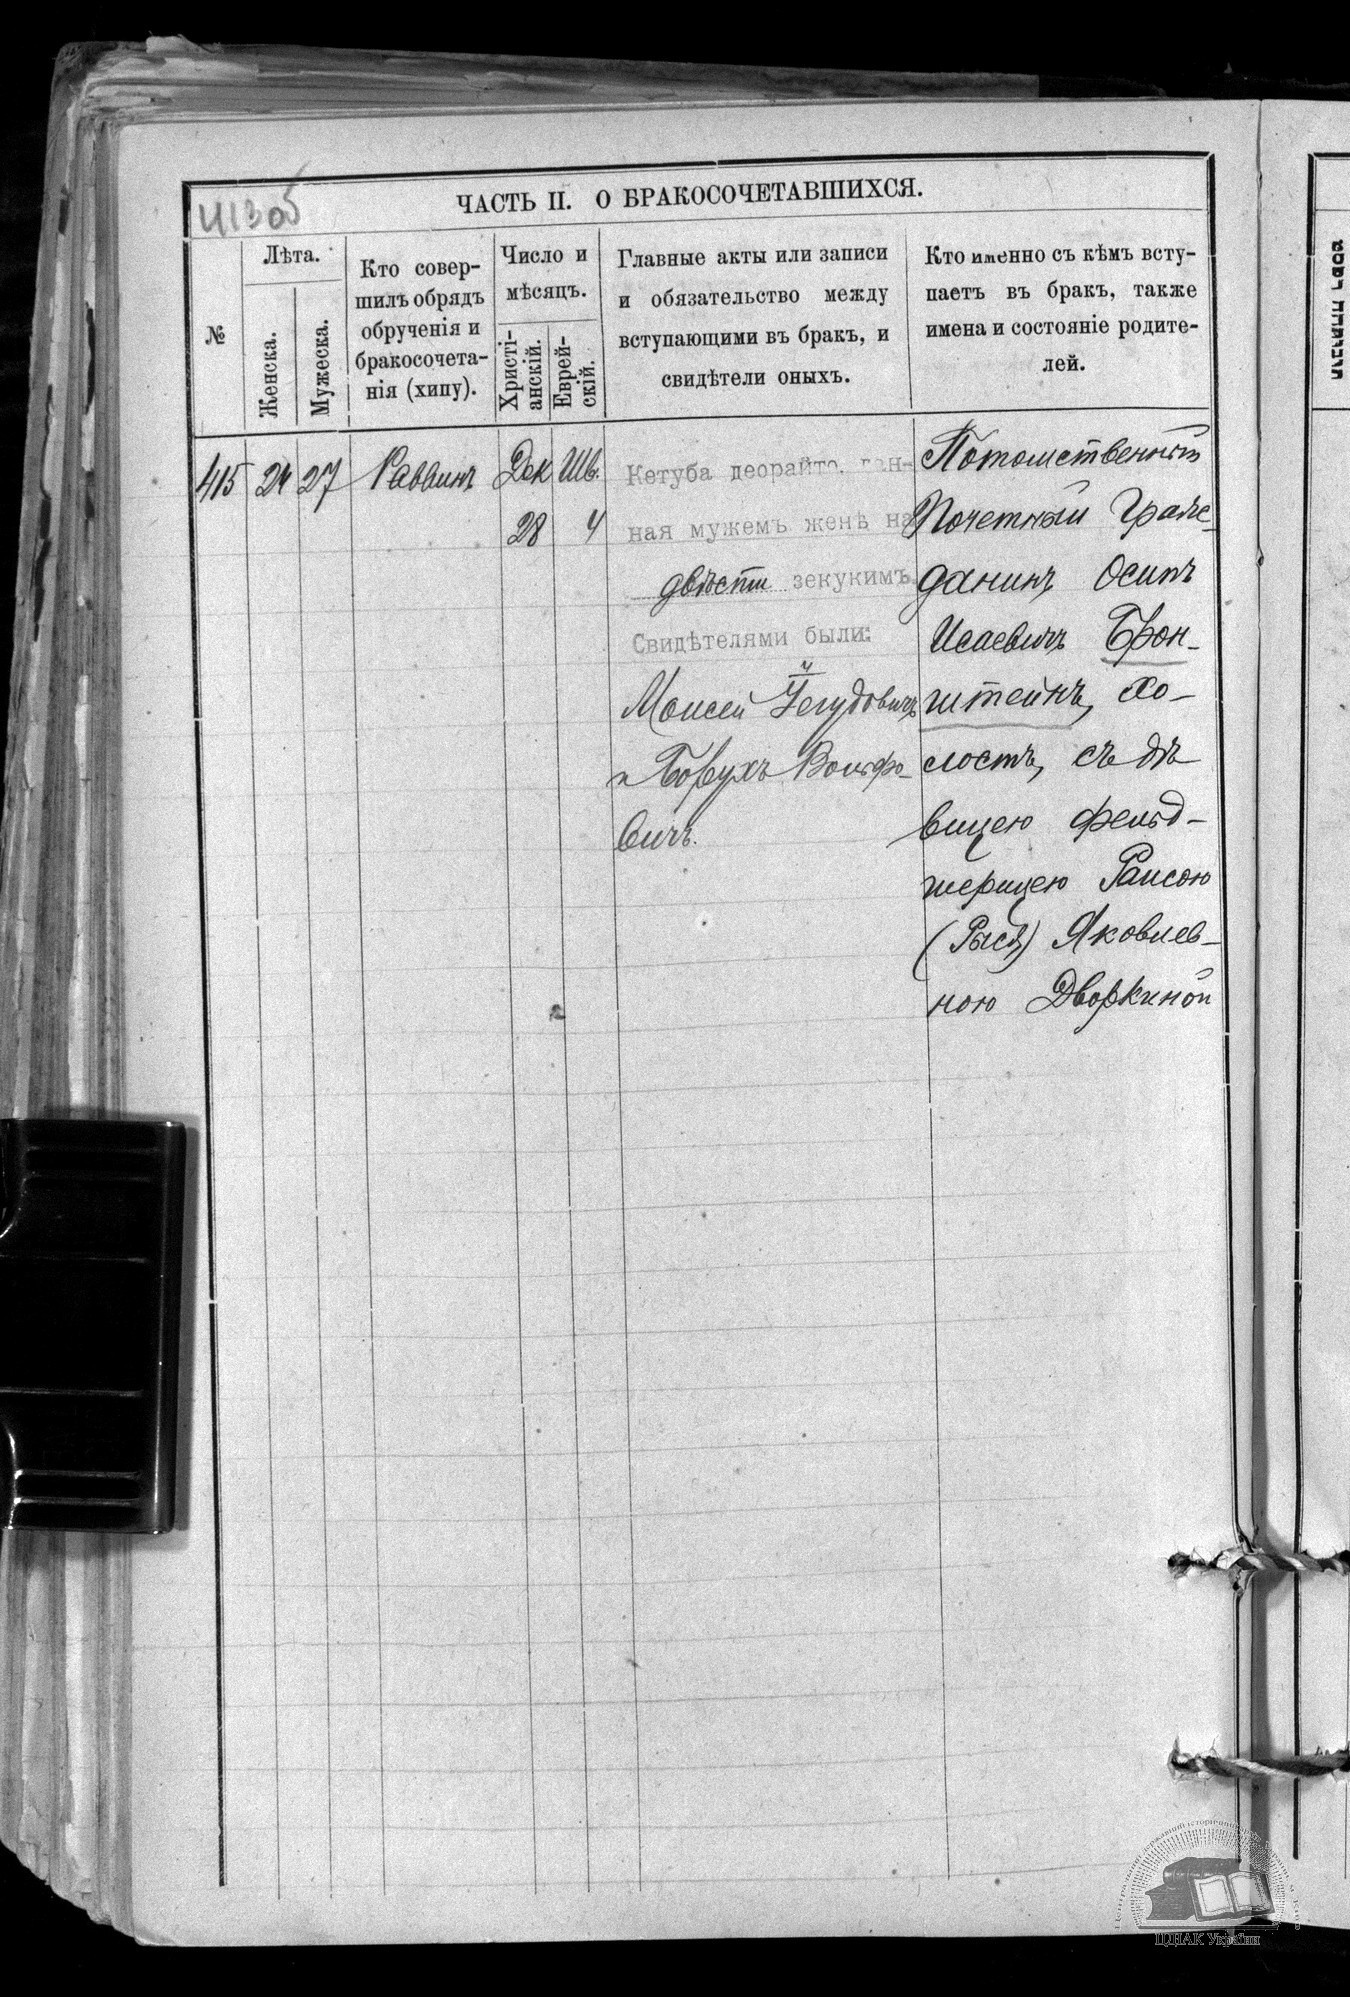 41306
ЧАСТЬ II. О БРАКОСОЧЕТАВШИХСЯ.
№
Лѣта.
Женска.
Мужеска.
Кто совер-
шилъ обрядъ
обрученія и
бракосочета-
нія (хипу).
Число и
мѣсяцъ.
Христі-
анскій.
Еврей-
скій.
Главные акты или записи
и обязательство между
вступающими въ бракъ, и
свидѣтели оныхъ.
Кто именно съ кѣмъ всту-
паетъ въ бракъ, также
имена и состояніе родите-
лей.
415 24 27 Раввинъ Дек Шв.
28 4
Кетуба деорайто, дан-
ная мужемъ женѣ на
двѣсти зекукимъ.
Свидѣтелями были:
Моисей Іегудовичъ
и Борухъ Вольфо-
вичъ.
Потомственный
Почетный Граж-
данинъ Осипъ
Исаевичъ Брон-
штейнъ, хо-
лостъ, съ дѣ
вицею фельд-
шерицею Раисою
(Рыся) Яковлев-
ною Дворкиной
ЦДІАК України